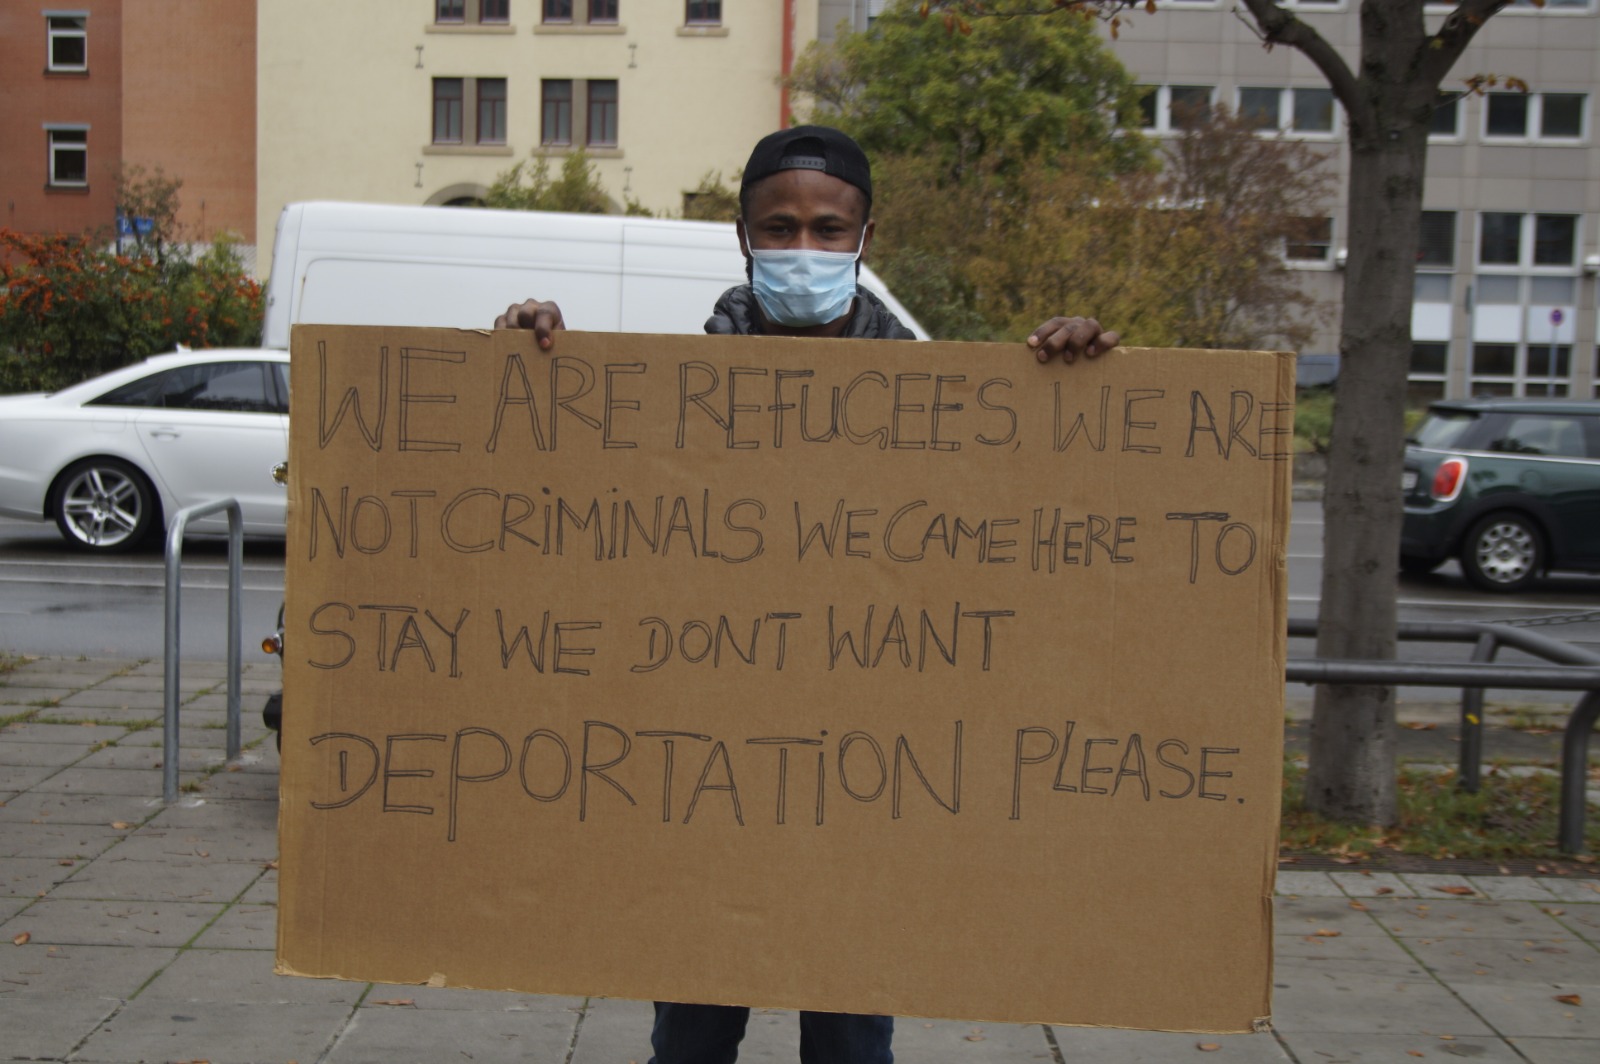 WE ARE REFUGEES, WE ARE
NOT CRiMiNALS WE CAME HERE TO
STAY WE DON'T WANT
DEPORTATiON PLEASE.